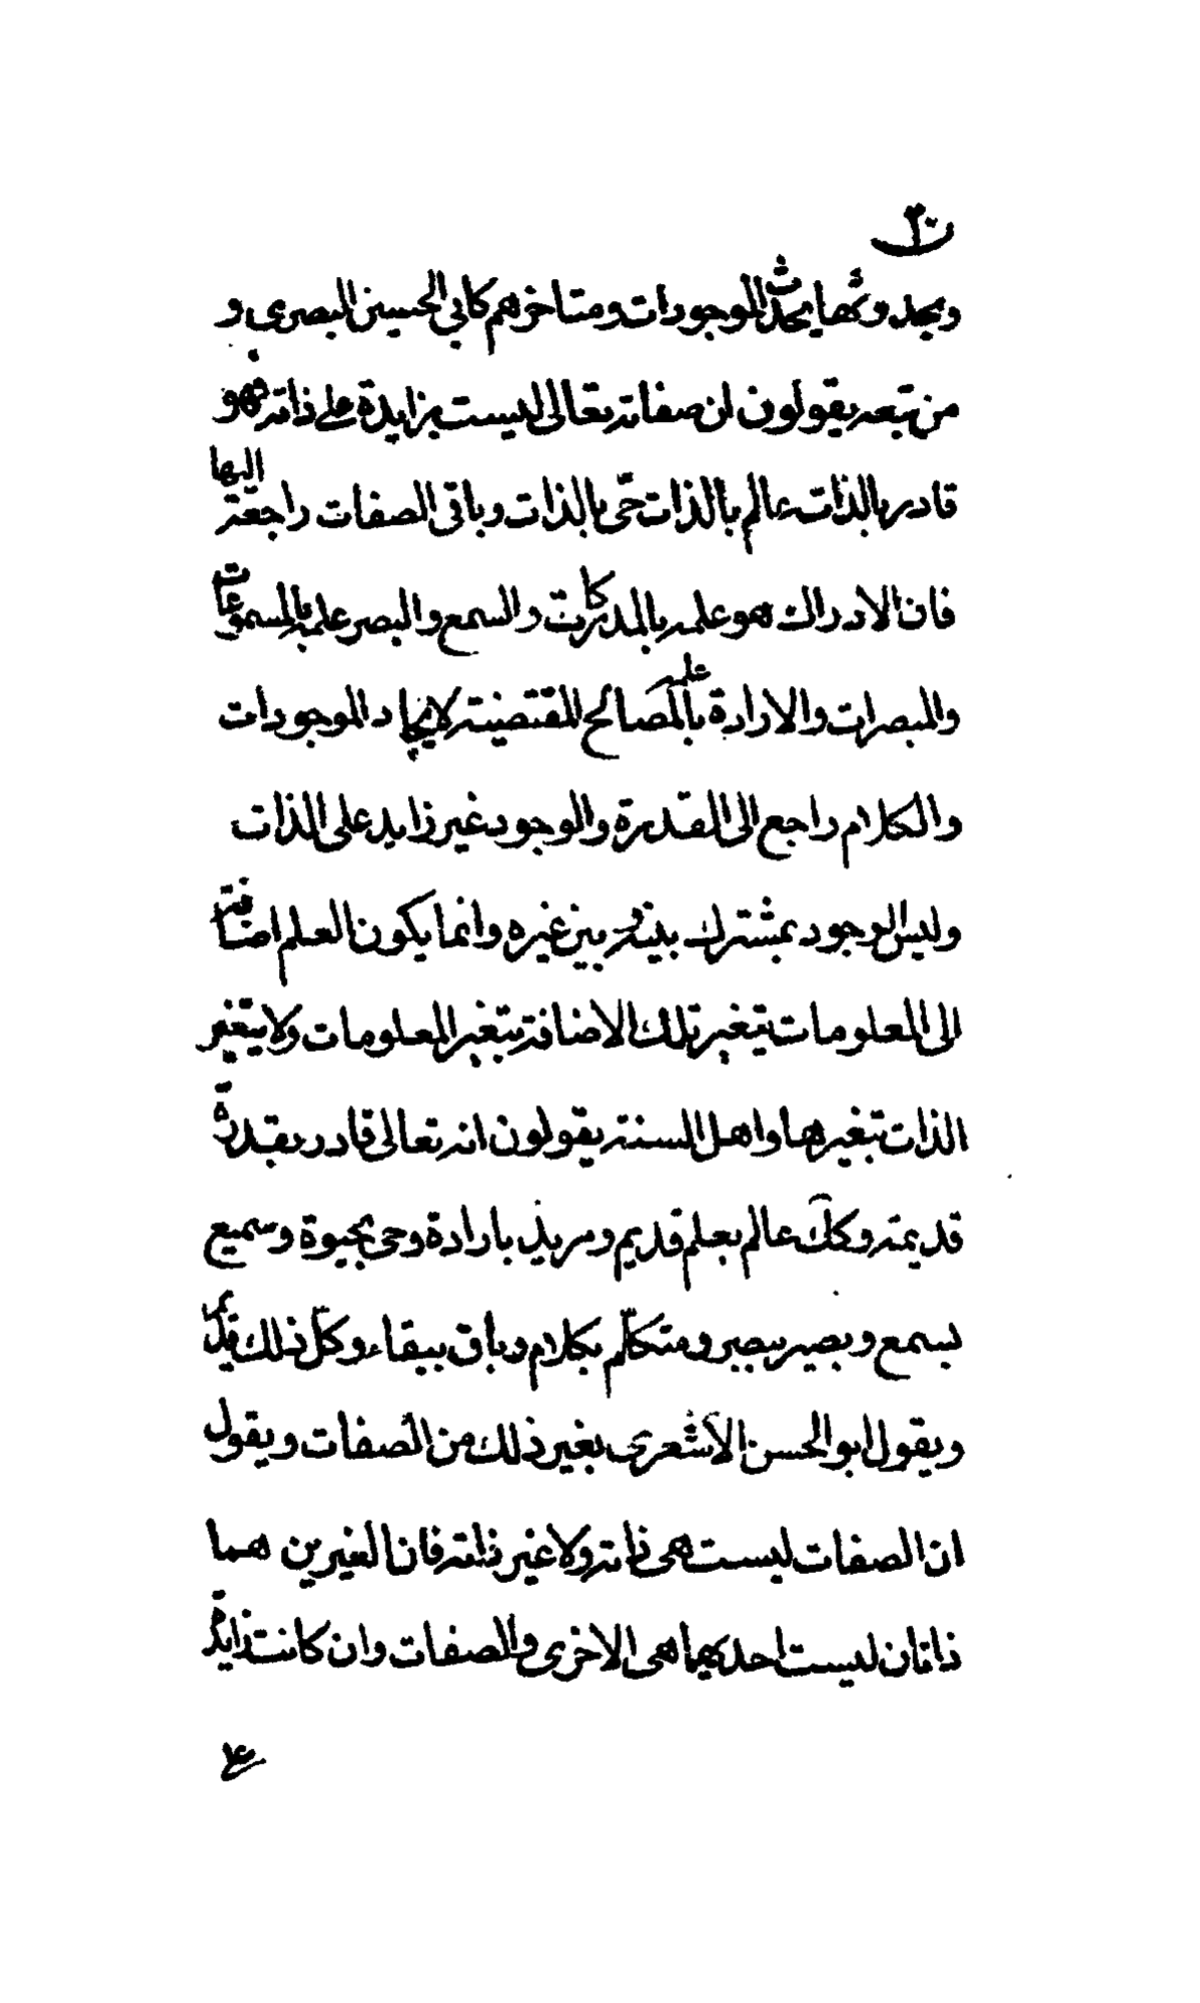 ٣٠
وبحدوثها يحدث الموجودات ومتاخرهم كابي الحسين البصري و
من تبعه يقولون ان صفاته تعالى ليست بزايدة على ذاته فهو
قادر بالذات عالم بالذات حّى بالذات وباقى الصفات راجعة اليها
فان الادراك هو علمه بالمدركات والسمع والبصر علمه بالمسموعات
والمبصرات والارادة علمه بالمصالح المقتضية لايجاد الموجودات
والكلام راجع الى القدرة والوجود غير زايد على الذات
وليس الوجود بمشترك بينه وبين غيره وانما يكون العلم اضافة
الى المعلومات يتغير تلك الاضافة بتغير المعلومات ولا يتغير
الذات بتغيرها واهل السنة يقولون انه تعالى قادر بقدرة
قديمة وكل عالم بعلم قديم ومريد بارادة وحى بحيوة وسميع
بسمع وبصير ببصر ومتكلّم بكلام وباق ببقاء وكلّ ذلك قديم
ويقول ابو الحسن الاشعرى بغير ذلك من الصفات ويقول
ان الصفات ليست هى ذاته ولا غير ذاته فان الغيرين هما
ذاتان ليست احديهما هى الاخرى والصفات وان كانت زايدة